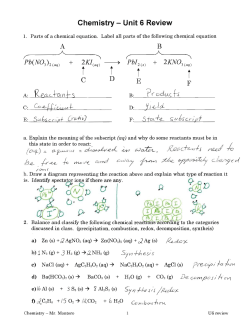 Chemistry – Unit 6 Review
1. Parts of a chemical equation. Label all parts of the following chemical equation
A B
Pb(NO₃)₂(aq) + 2KI(aq) → PbI₂(s) + 2KNO₃(aq)
C D E F
A. Reactants B. Products
C. Coefficient D. yield
E. Subscript (ratio) F. State subscript
a. Explain the meaning of the subscript (aq) and why do some reactants must be
this state in order to react:
(aq) = aqueous = dissolved in water. Reactants need to
be free to move and away from the oppositely charged
ions.
b. Draw a diagram representing the reaction above and explain what type of reaction it
is. Identify spectator ions if there are any.
2. Balance and classify the following chemical reactions according to the categories
discussed in class. (precipitation, combustion, redox, decomposition, synthesis)
a) Zn (s) + 2 AgNO₃ (aq) → Zn(NO₃)₂ (aq) + 2 Ag (s) Redox
b) N₂ (g) + 3 H₂ (g) → 2 NH₃ (g) Synthesis
c) NaCl (aq) + AgC₂H₃O₂ (aq) → NaC₂H₃O₂ (aq) + AgCl (s) Precipitation
d) Ba(HCO₃)₂ (s) → BaCO₃ (s) + H₂O (g) + CO₂ (g) Decomposition
e) Al (s) + 3 S₈ (s) → Al₂S₃ (s) Synthesis / Redox
f) 2 C₆H₆ + 15 O₂ → 12 CO₂ + 6 H₂O Combustion
Chemistry – Mr. Montero 1 U6 review